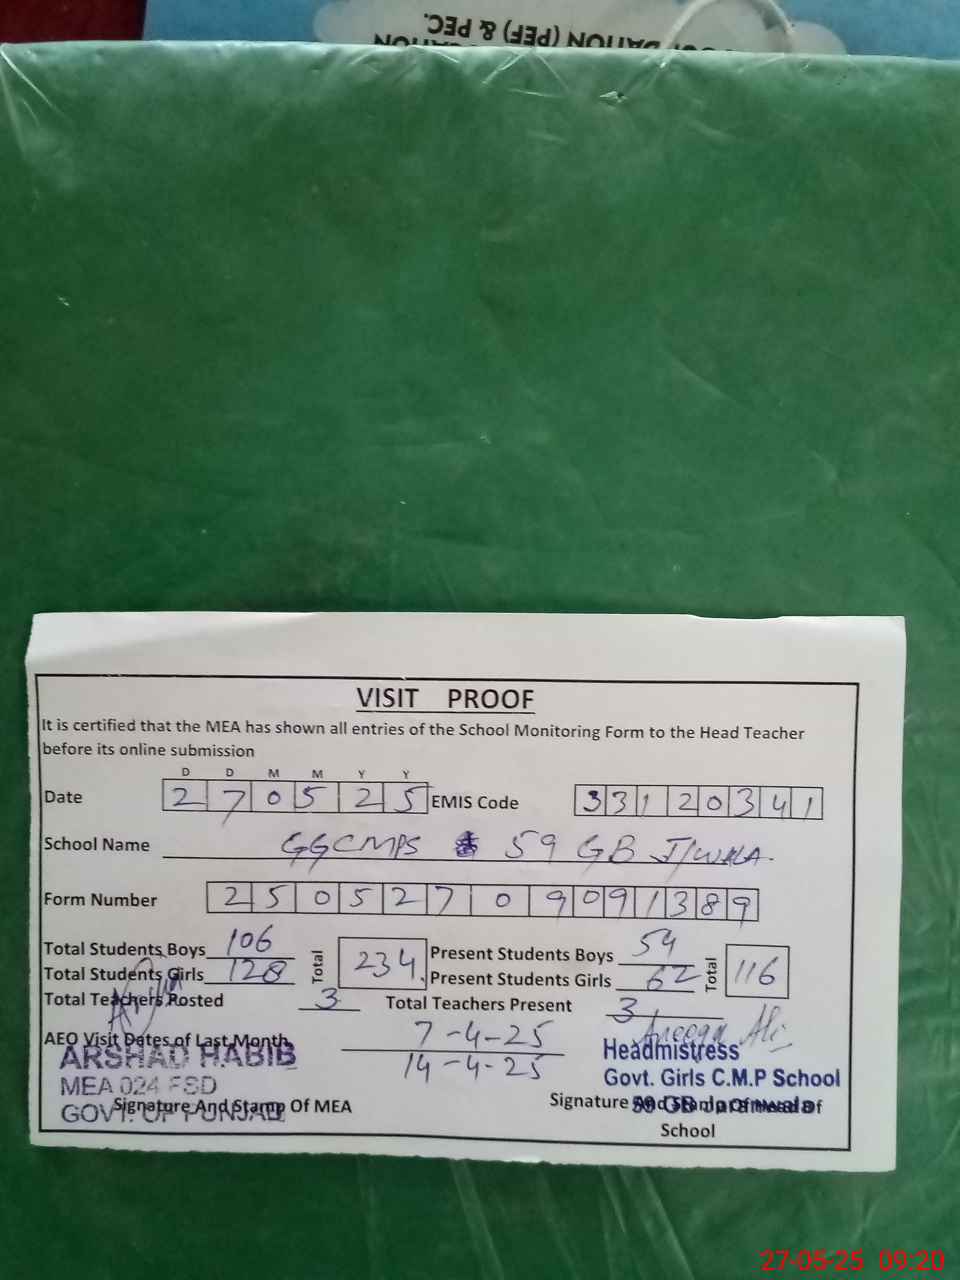 DATION (PEF) & PEC.
VISIT PROOF
It is certified that the MEA has shown all entries of the School Monitoring Form to the Head Teacher
before its online submission
D D M M Y Y
Date 2 7 0 5 2 5 EMIS Code 3 3 1 2 0 3 4 1
School Name GGCMPS 59 GB J/WALA.
Form Number 2 5 0 5 2 7 0 9 0 9 1 3 8 9
Total Students Boys 106 Total 234 Present Students Boys 54 Total 116
Total Students Girls 128 Present Students Girls 62
Total Teachers Posted 3 Total Teachers Present 3
AEO Visit Dates of Last Month 7-4-25
14-4-25
ARSHAD HABIB
MEA 024 FSD
GOVT. OF PUNJAB
Signature And Stamp Of MEA
Headmistress
Govt. Girls C.M.P School
59 GB Jaranwala
Signature And Stamp Of Head Of
School
27-05-25 09:20